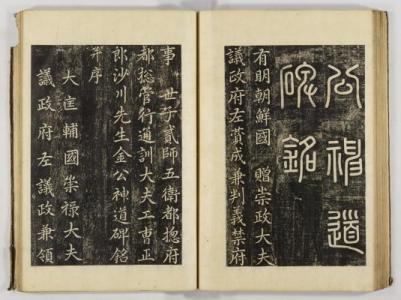 公神道
碑銘
有明朝鮮國 贈崇政大夫
議政府左贊成兼判義禁府
事 世子貳師五衛都摠府
都摠管行通訓大夫工曹正
郎沙川先生金公神道碑銘
并序
大匡輔國崇祿大夫
議政府左議政兼領